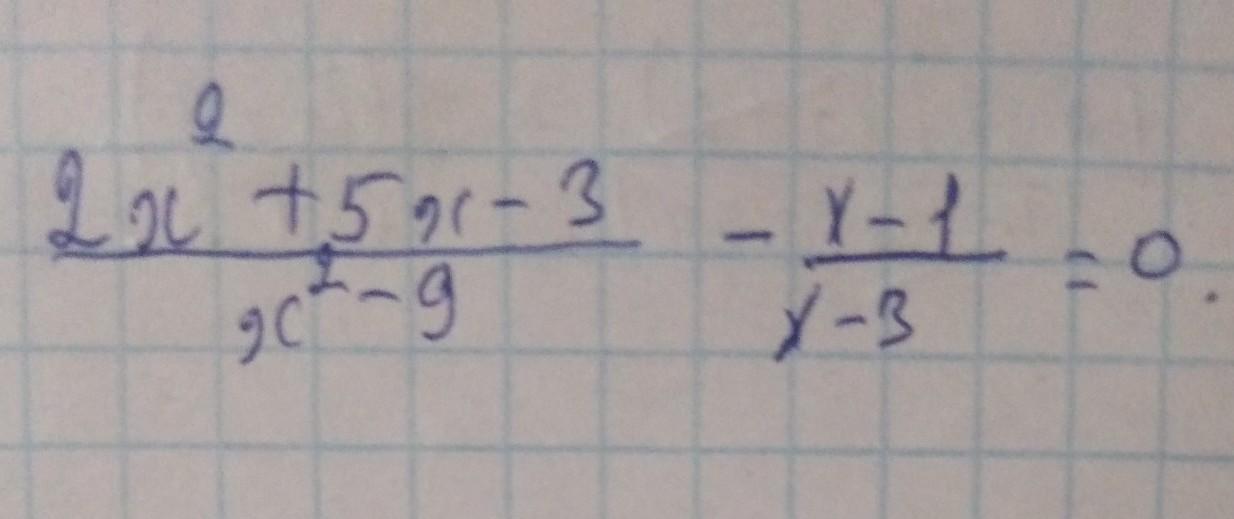 2x² + 5x - 3 / x² - 9 - x - 1 / x - 3 = 0.